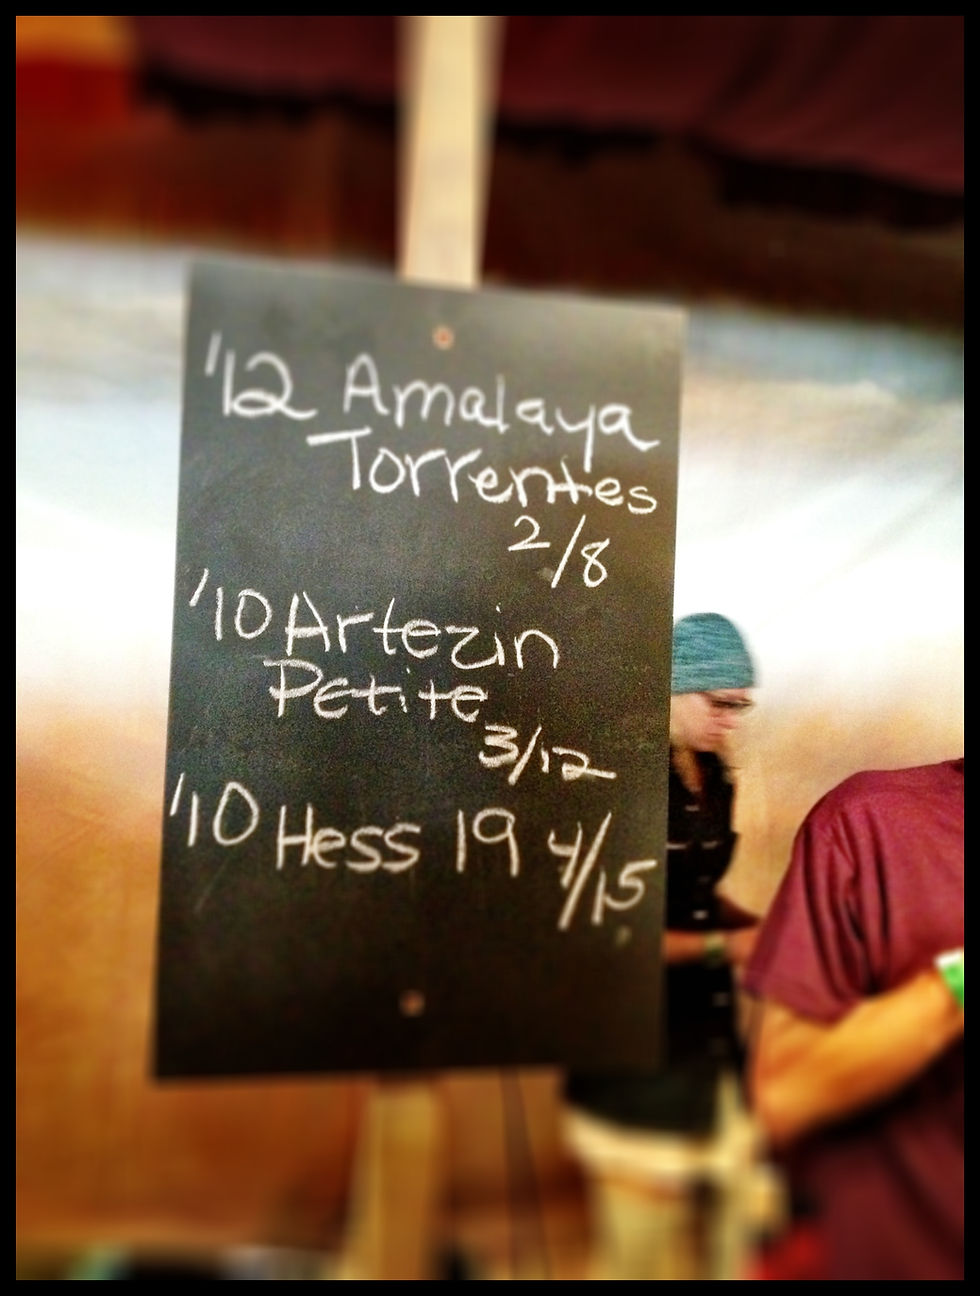 '12 Amalaya
Torrentes
2/8
'10 Artezin
Petite
3/12
'10 Hess 19 4/15